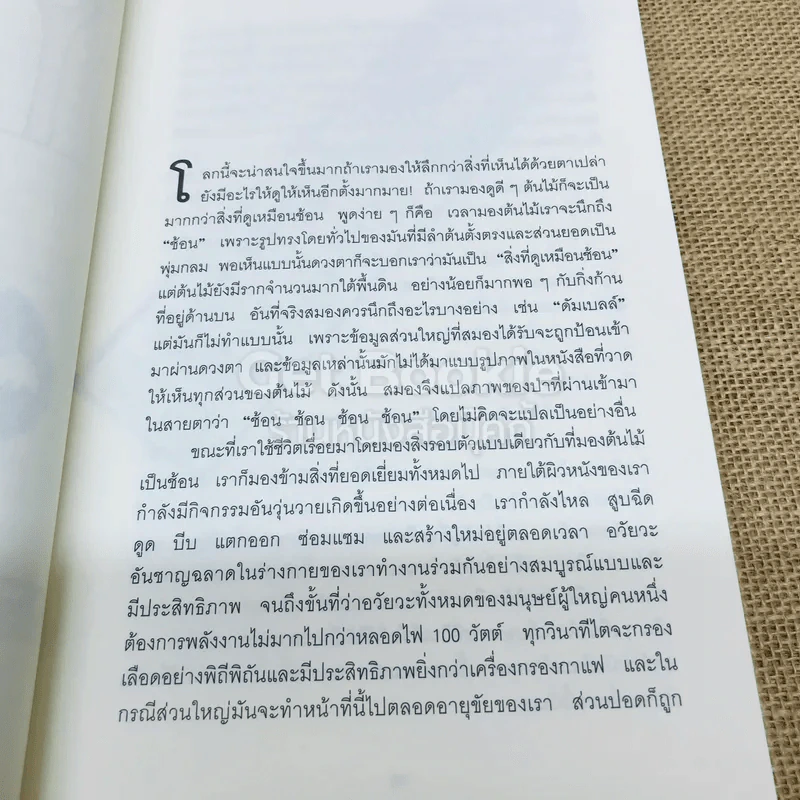 โลกนี้จะน่าสนใจขึ้นมากถ้าเรามองให้ลึกกว่าสิ่งที่เห็นได้ด้วยตาเปล่า
ยังมีอะไรให้ดูให้เห็นอีกตั้งมากมาย! ถ้าเรามองดูดี ๆ ต้นไม้ก็จะเป็น
มากกว่าสิ่งที่ดูเหมือนช้อน พูดง่าย ๆ ก็คือ เวลามองต้นไม้เราจะนึกถึง
“ช้อน” เพราะรูปทรงโดยทั่วไปของมันที่มีลำต้นตั้งตรงและส่วนยอดเป็น
พุ่มกลม พอเห็นแบบนั้นดวงตาก็จะบอกเราว่ามันเป็น “สิ่งที่ดูเหมือนช้อน”
แต่ต้นไม้ยังมีรากจำนวนมากใต้พื้นดิน อย่างน้อยก็มากพอ ๆ กับกิ่งก้าน
ที่อยู่ด้านบน อันที่จริงสมองควรนึกถึงอะไรบางอย่าง เช่น “ดัมเบลล์”
แต่มันก็ไม่ทำแบบนั้น เพราะข้อมูลส่วนใหญ่ที่สมองได้รับจะถูกป้อนเข้า
มาผ่านดวงตา และข้อมูลเหล่านั้นมักไม่ได้มาแบบรูปภาพในหนังสือที่วาด
ให้เห็นทุกส่วนของต้นไม้ ดังนั้น สมองจึงแปลภาพของป่าที่ผ่านเข้ามา
ในสายตาว่า “ช้อน ช้อน ช้อน ช้อน” โดยไม่คิดจะแปลเป็นอย่างอื่น
ขณะที่เราใช้ชีวิตเรื่อยมาโดยมองสิ่งรอบตัวแบบเดียวกับที่มองต้นไม้
เป็นช้อน เราก็มองข้ามสิ่งที่ยอดเยี่ยมทั้งหมดไป ภายใต้ผิวหนังของเรา
กำลังมีกิจกรรมอันวุ่นวายเกิดขึ้นอย่างต่อเนื่อง เรากำลังไหล สูบฉีด
ดูด บีบ แตกออก ซ่อมแซม และสร้างใหม่อยู่ตลอดเวลา อวัยวะ
อันชาญฉลาดในร่างกายของเราทำงานร่วมกันอย่างสมบูรณ์แบบและ
มีประสิทธิภาพ จนถึงขั้นที่ว่าอวัยวะทั้งหมดของมนุษย์ผู้ใหญ่คนหนึ่ง
ต้องการพลังงานไม่มากไปกว่าหลอดไฟ 100 วัตต์ ทุกวินาทีไตจะกรอง
เลือดอย่างพิถีพิถันและมีประสิทธิภาพยิ่งกว่าเครื่องกรองกาแฟ และใน
กรณีส่วนใหญ่มันจะทำหน้าที่นี้ไปตลอดอายุขัยของเรา ส่วนปอดก็ถูก